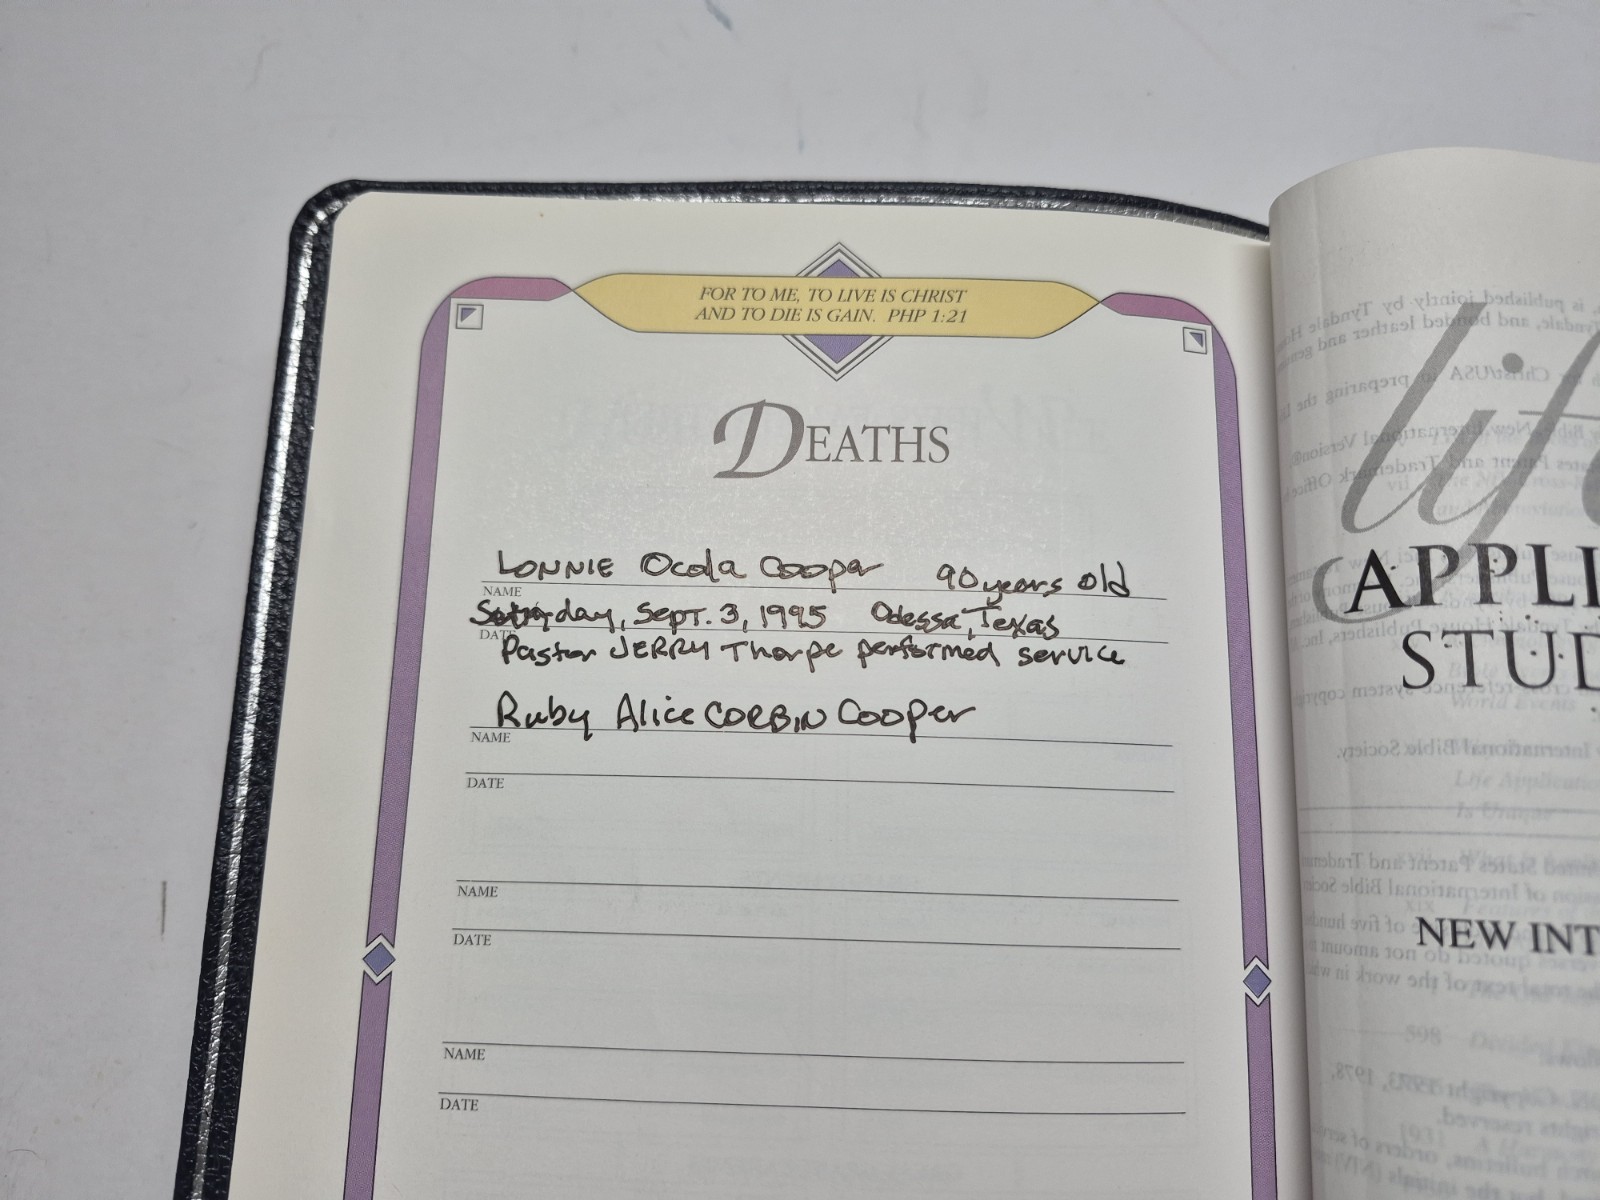 FOR TO ME, TO LIVE IS CHRIST
AND TO DIE IS GAIN. PHP 1:21
DEATHS
LONNIE Ocola Cooper 90 years old
NAME
Saturday, Sept. 3, 1995 Odessa, Texas
DATE
Pastor JERRY Thorpe performed service
Ruby Alice CORBIN Cooper
NAME
DATE
NAME
DATE
NAME
DATE
life
APPLI
STUD
NEW INT